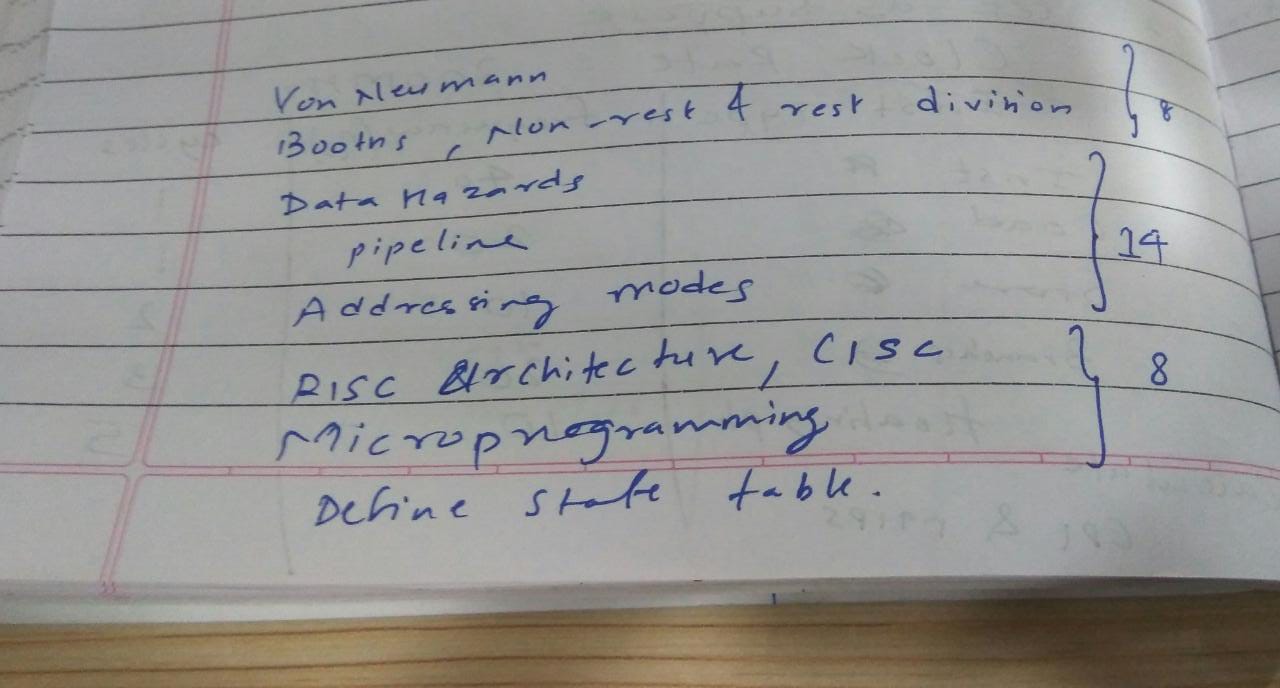 Von Neumann
Booths, Non-rest & rest division } 8
Data Hazards
pipeline } 14
Addressing modes
RISC Architecture, CISC } 8
Microprogramming
Define state table.